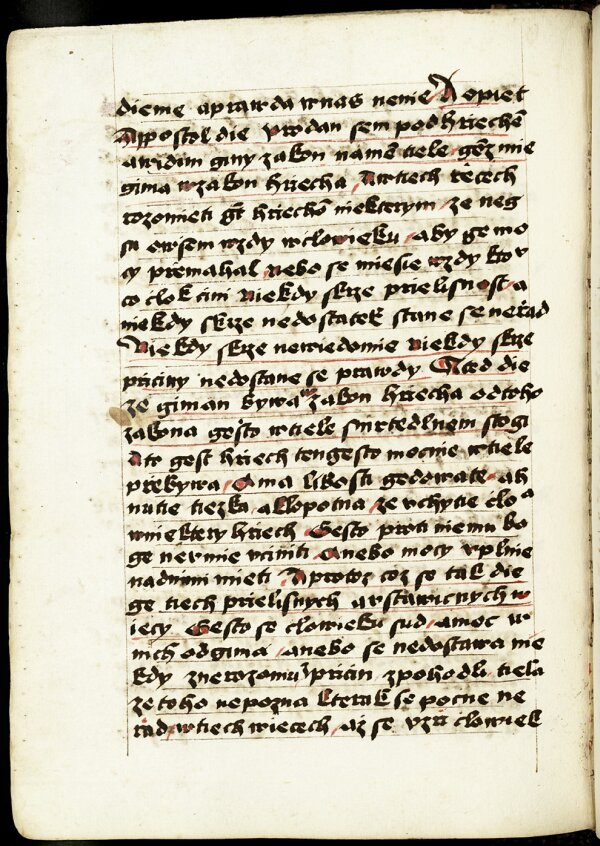 dieme aprawda wnas nenie A opiet
Appostol die prodan sem pod hriechē
awidim giny zakon namē tiele genz mie
gima wzakon hriecha A wtiech rēcech
rozomieti gt hriechō niekterym ze neg
su owsem wzdy wclowieku aby ge mo
cy premahal nebo se miesie wzdy kto
co clok cini Niekdy skrze prielisnost a
niekdy skrze nedostatek stane se nerad
Niekdy skrze newiedomie niekdy skrze
priciny nedostane se prawdy A ted die
ze giman bywa zakon hriecha odtoho
zakona gesto wtiele smrtedlnem stogi
A to gest hriech ten gesto mocnie wtiele
prebywa A ma likosti gedowate ah
nutie tiezka aklopotna ze vchytie clo a
wniektery hriech Gesto proti niemu bo
ge nevmie vciniti Anebo mocy vplnie
nadnim mieti A protoz coz se tak die
ge tiech prielisnych avstawicnych w
iecy Gesto se clowieku sud amoc w
nich odgima anebo se nedostawa nie
kdy znerozomu pricin zpohodli tiela
ze toho nepozna kterak se pocne ne
rad wtiech wiecech az se vzri clowiek